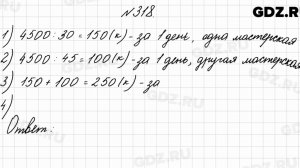 GDZ.R
№318.
1) 4500 : 30 = 150 (к) - за 1 день, одна мастерская
2) 4500 : 45 = 100 (к) - за 1 день, другая мастерская
3) 150 + 100 = 250 (к) - за
4)
Ответ: